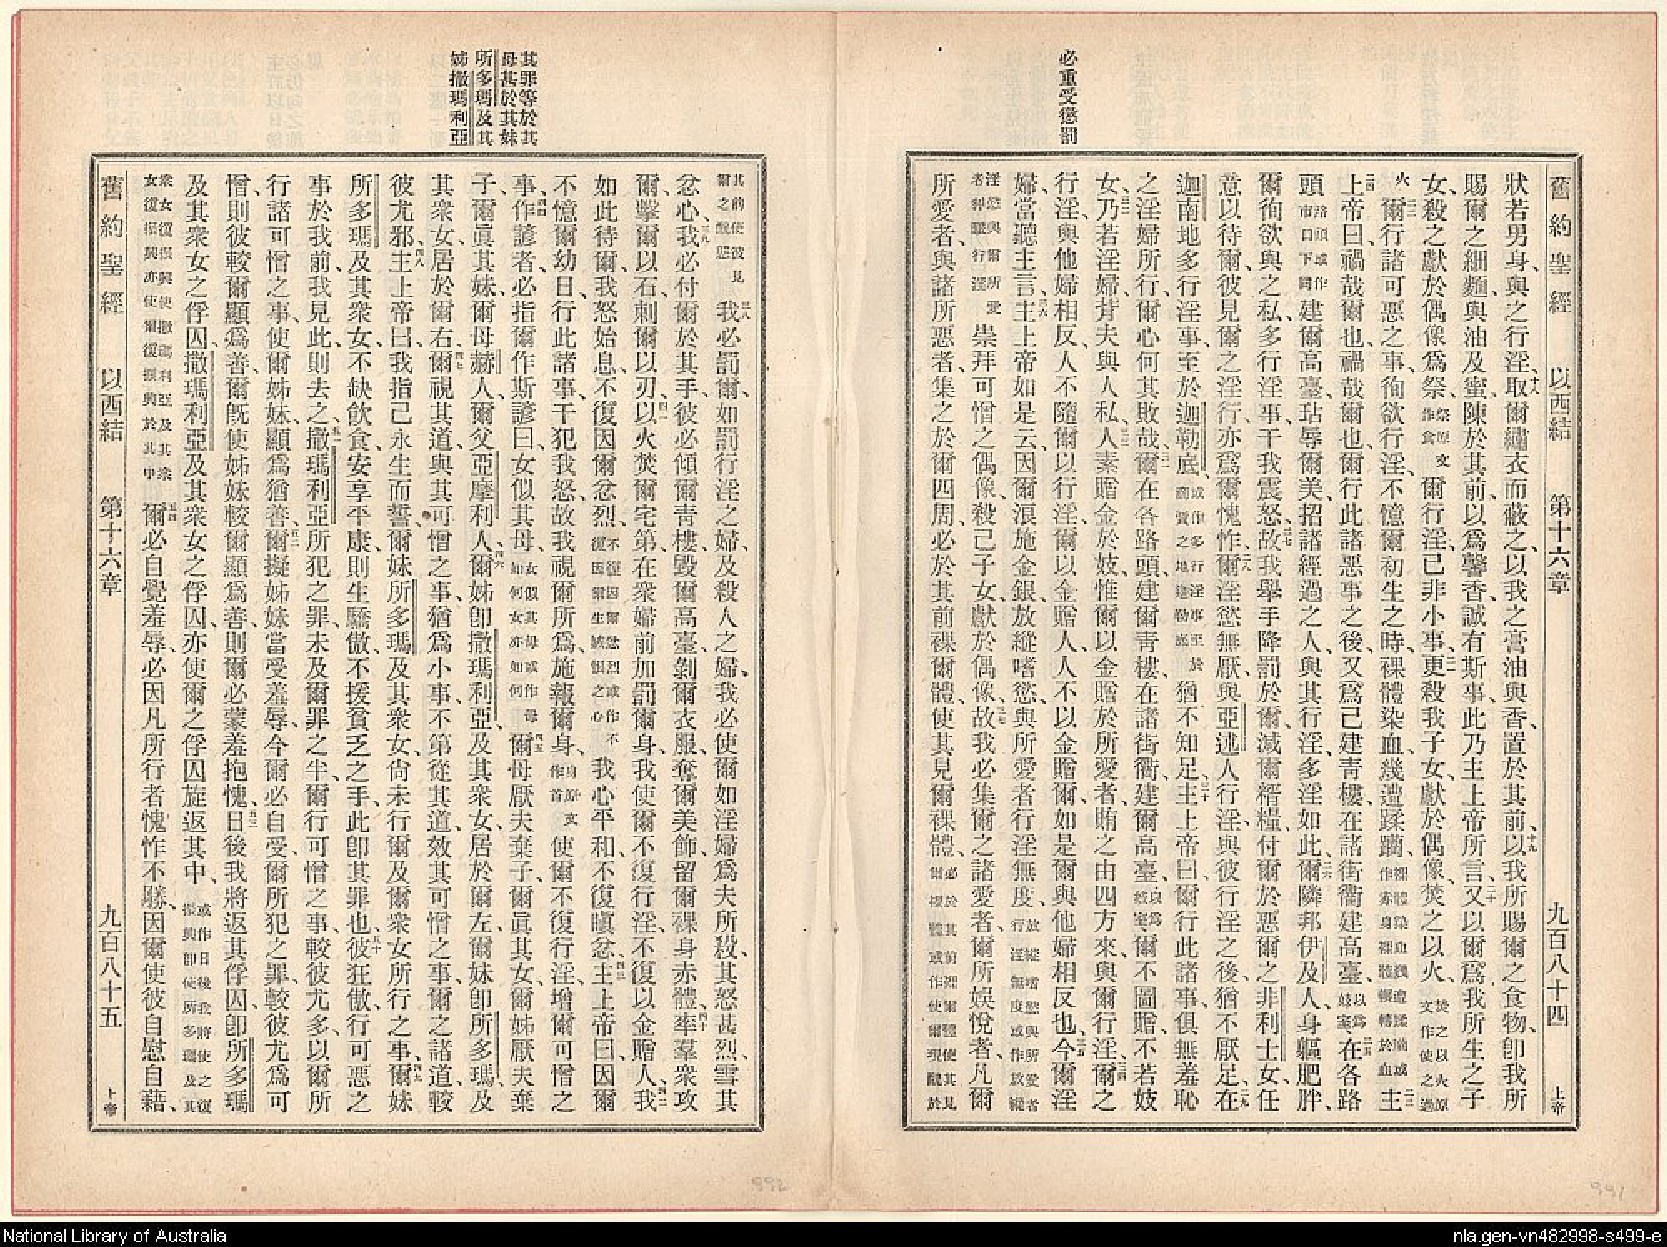 必重受懲罰
舊約聖經 以西結 第十六章 九百八十四 上帝
狀若男身、與之行淫、取爾繡衣而蔽之、以我之膏油與香、置於其前、以我所賜爾之食物、卽我所
賜爾之細麵、與油及蜜、陳於其前、以爲馨香、誠有斯事、此乃主上帝所言、又以爾爲我所生之子
女、殺之獻於偶像爲祭、爾行淫、己非小事、更殺我子女、獻於偶像、焚之以火、
爾行諸可惡之事、徇欲行淫、不憶爾初生之時、裸體染血、幾遭蹂躪、主
上帝曰、禍哉爾也、禍哉爾也、爾行此諸惡事之後、又爲己建靑樓、在諸街衢建高臺、在各路
頭建爾高臺、玷辱爾美、招諸經過之人、與其行淫、多淫如此、爾隣邦伊及人、身軀肥胖、
爾徇欲與之私、多行淫事、干我震怒、故我舉手降罰於爾、減爾糈糧、付爾於惡爾之非利士女、任
意以待爾、彼見爾之淫行、亦爲爾愧怍、爾淫慾無厭、與亞述人行淫、與彼行淫之後、猶不厭足、在
迦南地多行淫事、至於迦勒底、猶不知足、主上帝曰、爾行此諸事、俱無羞恥
之淫婦所行、爾心何其敗哉、爾在各路頭建爾靑樓、在諸街衢、建爾高臺、爾不圖贈、不若妓
女、乃若淫婦、背夫與人私、人素贈金於妓、惟爾以金贈於所愛者、賄之由四方來、與爾行淫、爾之
行淫、與他婦相反、人不隨爾以行淫、爾以金贈人、人不以金贈爾、如是爾與他婦相反也、今爾淫
婦、當聽主言、主上帝如是云、因爾浪施金銀、放縱嗜慾、與所愛者行淫無度、
崇拜可憎之偶像、殺己子女、獻於偶像、故我必集爾之諸愛者、爾所娛悅者、凡爾
所愛者、與諸所惡者、集之於爾四周、必於其前裸爾體、使其見爾裸體、
其罪等於其
母甚於其妹
所多瑪及其
姊撒瑪利亞
其前使彼見
爾之醜惡
我必罰爾、如罰行淫之婦、及殺人之婦、我必使爾如淫婦爲夫所殺、其怒甚烈、雪其
忿心、我必付爾於其手、彼必傾爾靑樓、毀爾高臺、剝爾衣服、奪爾美飾、留爾裸身赤體、率羣衆攻
爾、擊爾以石、刺爾以刃、以火焚爾宅第、在衆婦前加罰爾身、我使爾不復行淫、不復以金贈人、我
如此待爾、我怒始息、不復因爾忿烈、我心平和、不復瞋忿、主上帝曰、因爾
不憶爾幼日、行此諸事、干犯我怒、故我視爾所爲、施報爾身、使爾不復行淫、增爾可憎之
事、作諺者、必指爾作斯諺曰、女似其母、爾母厭夫棄子、爾眞其女、爾姊厭夫棄
子、爾眞其妹、爾母赫人、爾父亞摩利人、爾姊卽撒瑪利亞、及其衆女、居於爾左、爾妹卽所多瑪、及
其衆女、居於爾右、爾視其道、與其可憎之事、猶爲小事、不第從其道、效其可憎之事、爾之諸道、較
彼尤邪、主上帝曰、我指己永生而誓、爾妹所多瑪及其衆女、尙未行爾及爾衆女所行之事、爾妹
所多瑪及其衆女、不缺飮食、安享平康、則生驕傲、不援貧乏之手、此卽其罪也、彼狂傲、行可惡之
事於我前、我見此、則去之、撒瑪利亞所犯之罪、未及爾罪之半、爾行可憎之事、較彼尤多、以爾所
行諸可憎之事、使爾姊妹、顯爲猶善、爾擬姊妹當受羞辱、今爾必自受、爾所犯之罪、較彼尤爲可
憎、則彼較爾顯爲善、爾旣使姊妹較爾顯爲善、則爾必蒙羞抱愧、日後我將返其俘囚、卽所多瑪
及其衆女之俘囚、撒瑪利亞及其衆女之俘囚、亦使爾之俘囚旋返其中、
爾必自覺羞辱、必因凡所行者愧怍不勝、因爾使彼自慰自藉、
舊約聖經 以西結 第十六章 九百八十五 上帝
992
991
National Library of Australia
nla.gen-vn482998-s499-e